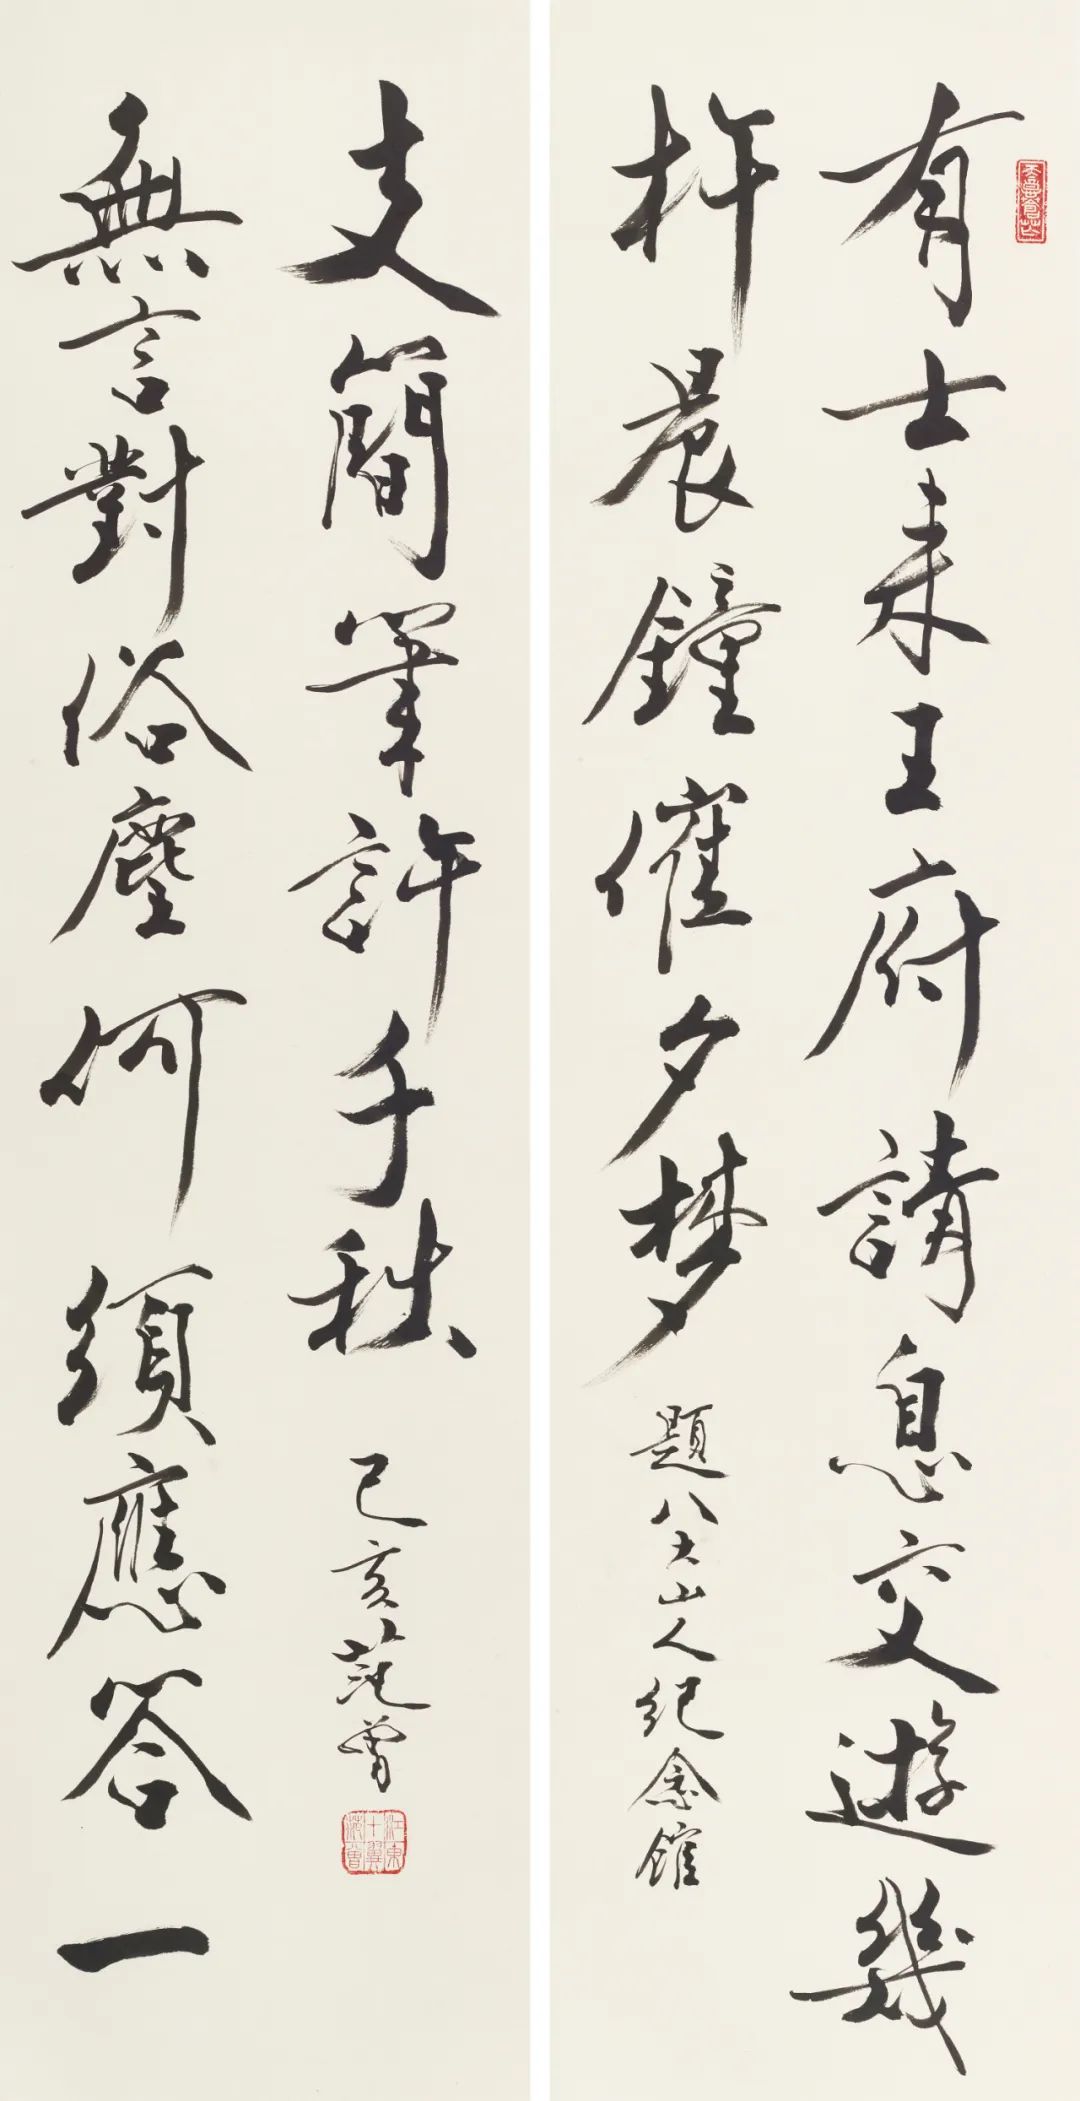 有士来王府請息交遊幾
杵晨鐘催夕梦
題八大山人紀念館
無言對俗塵何須應答一
支簡筆許千秋
己亥范曾
江東十翼范曾